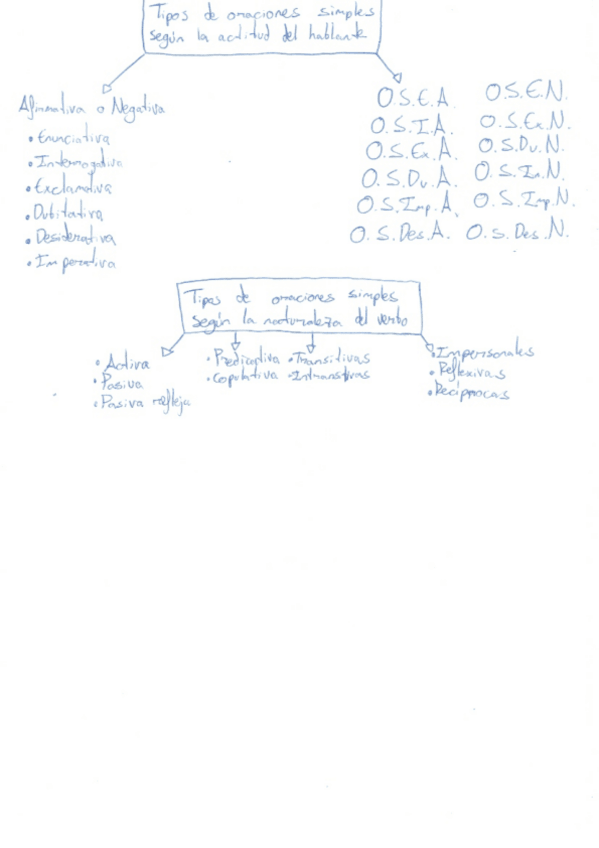 Tipos de oraciones simples
según la actitud del hablante
Afirmativa o Negativa
• Enunciativa
• Interrogativa
• Exclamativa
• Dubitativa
• Desiderativa
• Imperativa
O.S.E.A. O.S.E.N.
O.S.I.A. O.S.Ex.N.
O.S.Ex.A. O.S.Du.N.
O.S.Du.A. O.S.In.N.
O.S.Imp.A. O.S.Imp.N.
O.S.Des.A. O.S.Des.N.
Tipos de oraciones simples
según la naturaleza del verbo
• Activa
• Pasiva
• Pasiva refleja
• Predicativa
• Copulativa
• Transitivas
• Intransitivas
• Impersonales
• Reflexivas
• Recíprocas